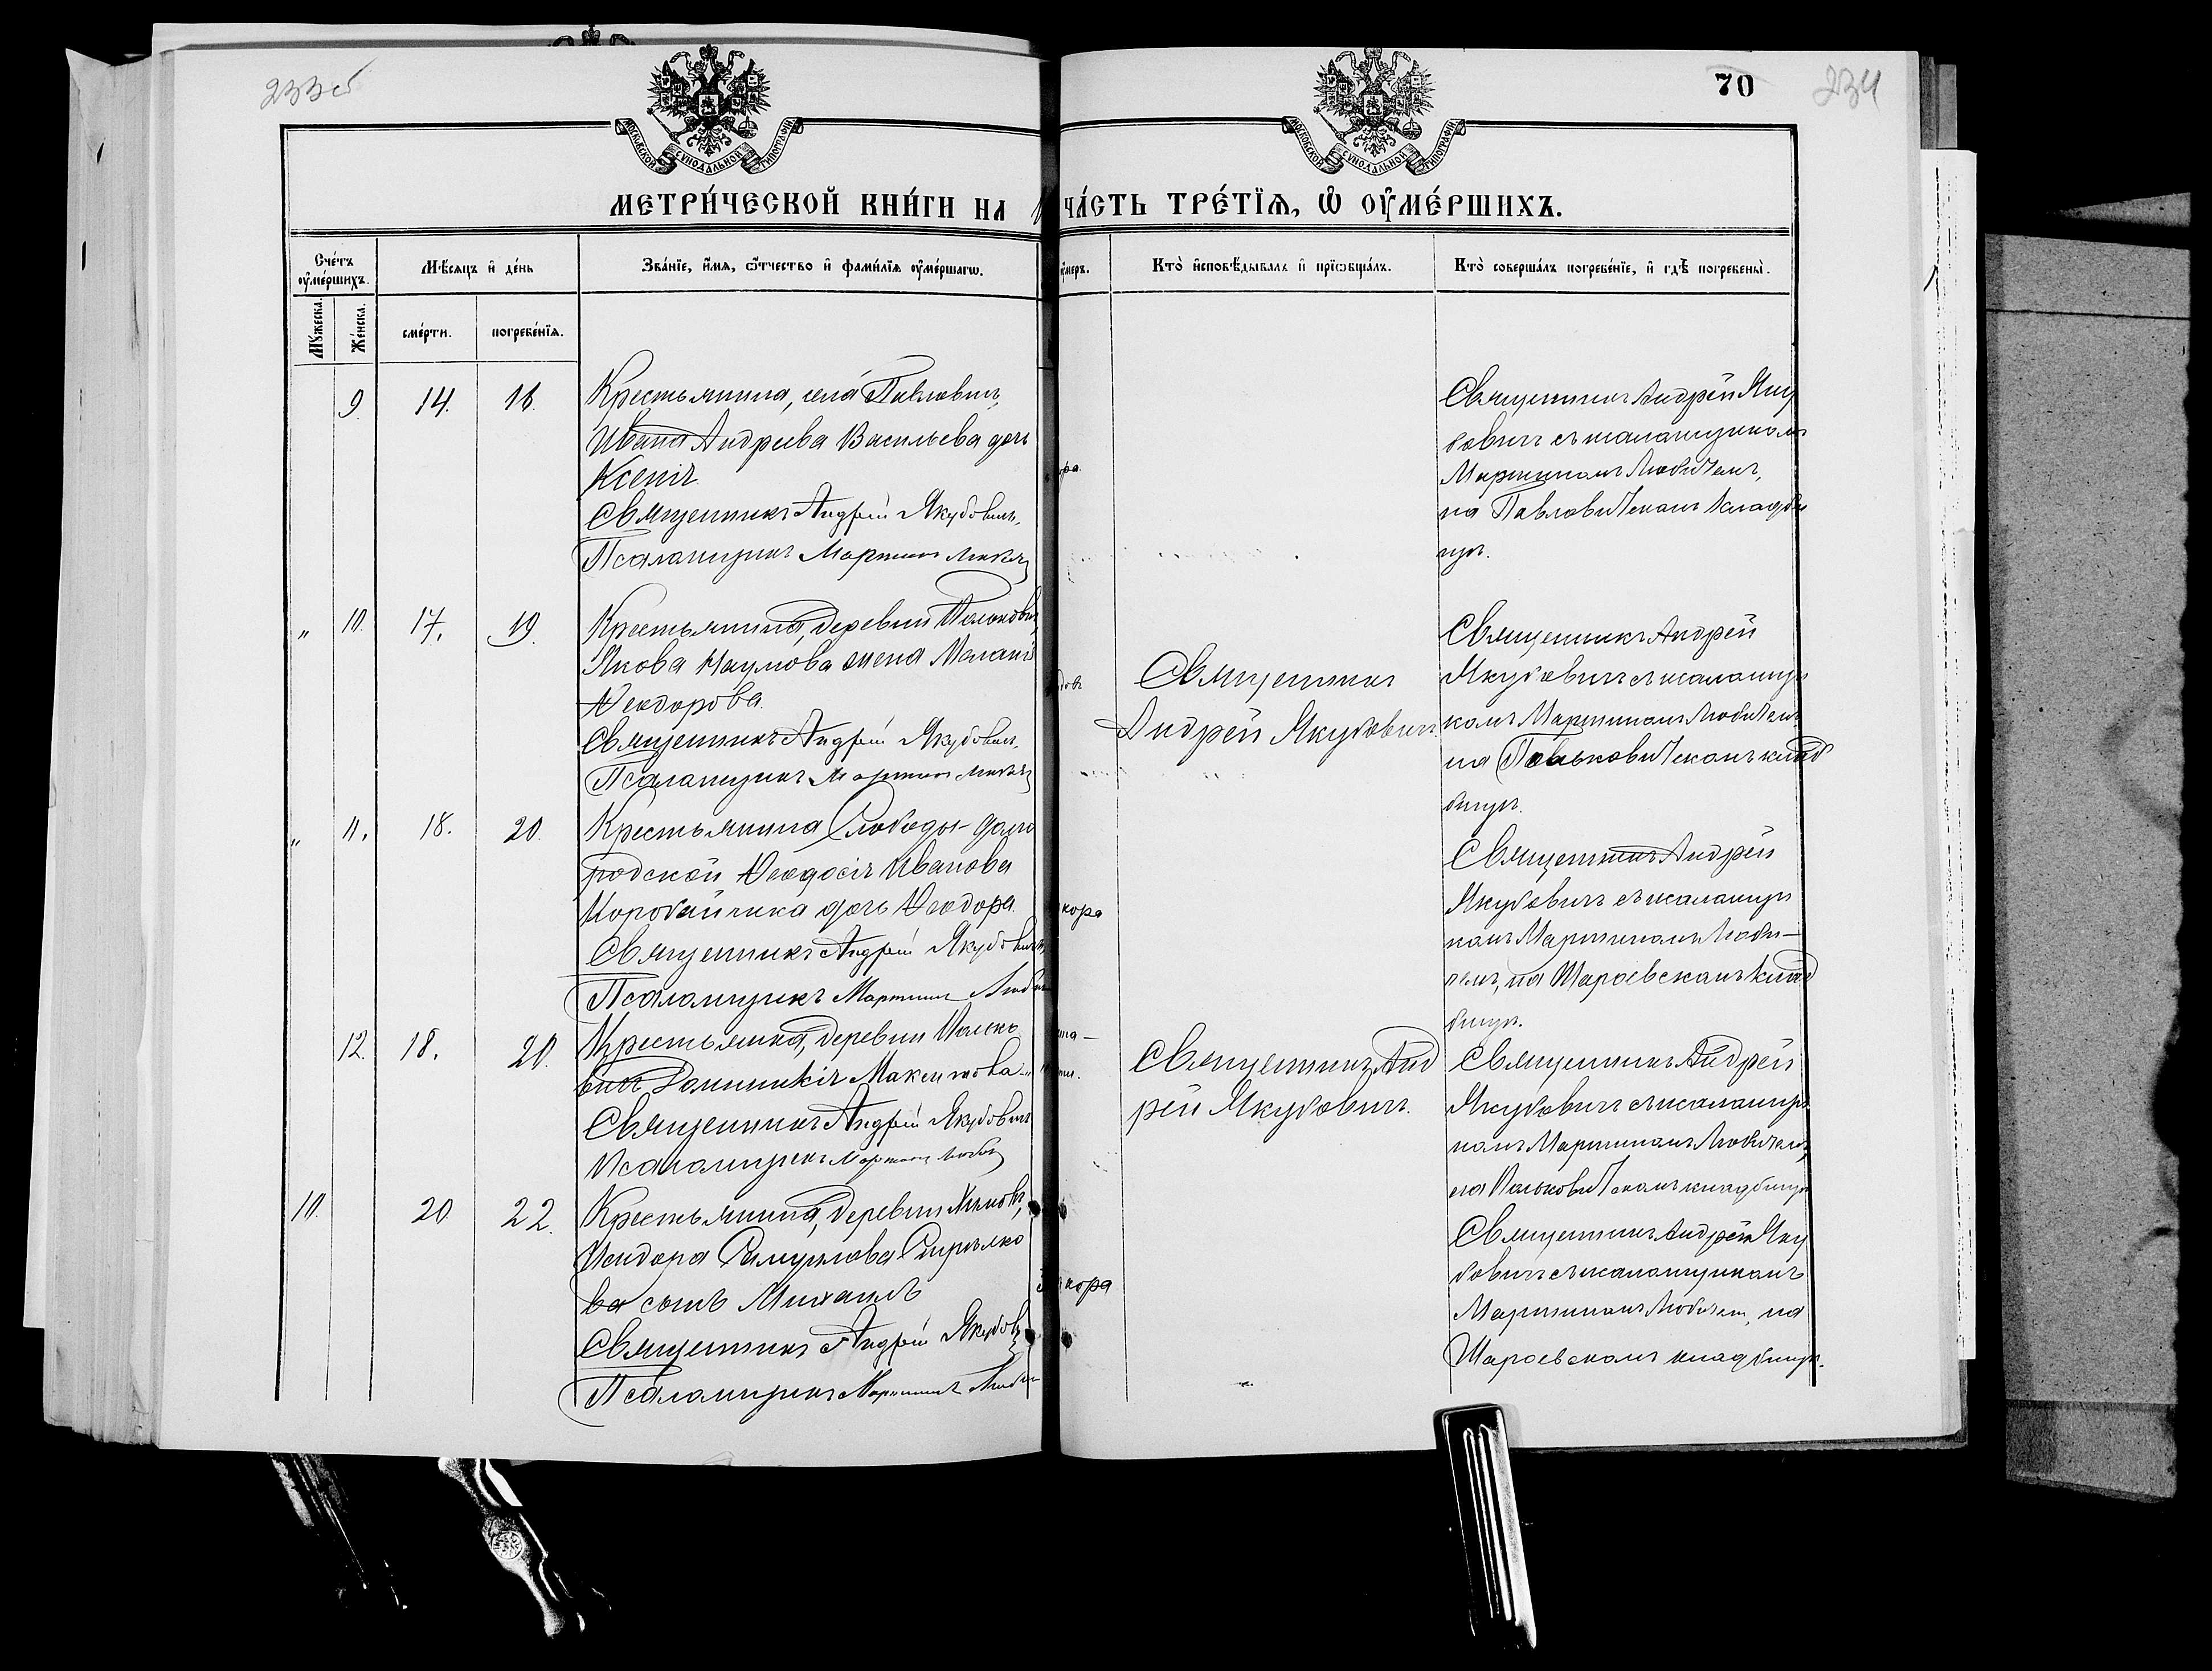 233об
70 234
МОСКОВСКОЙ СѴНОДАЛЬНОЙ ТИПОГРАФІИ
МОСКОВСКОЙ СѴНОДАЛЬНОЙ ТИПОГРАФІИ
МЕТРИ́ЧЕСКОЙ КНИ́ГИ НА 1
ЧА́СТЬ ТРЕ́ТЇѦ, Ѽ ОУ҆МЕ́РШИХЪ.
Сче́тъ оу҆ме́ршихъ.
Мѣ́сяцъ и҆ де́нь
Зва́нїе, и҆́мя, ѻ҆́тчество и҆ фами́лїя оу҆ме́ршагѡ.
оу҆меръ.
Кто̀ и҆сповѣ́дывалъ и҆ прїѡбща́лъ.
Кто̀ соверша́лъ погребе́нїе, и҆ гдѣ̀ погребены̀.
Мꙋ́жеска.
Же́нска.
сме́рти.
погребе́нїя.
9. 14. 16.
Крестьянина, села Павловичъ,
Ивана Андреева Васильева дочь
Ксенія
Священникъ Андрей Якубовичъ.
Псаломщикъ Мартинъ
ора.
Священникъ Андрей Яку
бовичъ съ псаломщикомъ
Мартиномъ Любичемъ,
на Павловичскомъ кладби
щѣ.
„ 10. 17. 19.
Крестьянина, деревни Паньковичъ,
Якова Наумова жена Меланія
Ѳеодорова.
Священникъ Андрей Якубовичъ.
Псаломщикъ Мартинъ
одовъ
Священникъ
Андрей Якубовичъ.
Священникъ Андрей
Якубовичъ съ псаломщи
комъ Мартиномъ Любичемъ
на Паньковичскомъ клад
бищѣ.
„ 11. 18. 20.
Крестьянина Слободы-Долго
родской Ѳеодосія Иванова
Коробейника дочь Ѳеодора.
Священникъ Андрей Якубовичъ
Псаломщикъ Мартинъ Любич
кора
Священникъ Андрей
Якубовичъ съ псаломщи
комъ Мартиномъ Люби-
чемъ, на Шароевскомъ клад
бищѣ.
12. 18. 20.
Крестьянка, деревни Панько
вичъ Домникія Максимова
Священникъ Андрей Якубовичъ
Псаломщикъ Мартинъ Любич
Священникъ Анд
рей Якубовичъ.
Священникъ Андрей
Якубовичъ съ псаломщи
комъ Мартиномъ Любичемъ,
на Паньковичскомъ кладбищѣ
10. 20. 22.
Крестьянина, деревни
Исидора Самуилова
ва сынъ Михаилъ
Священникъ Андрей Якубов
Псаломщикъ Мартинъ Любич
кора
Священникъ Андрей Яку
бовичъ съ псаломщикомъ
Мартиномъ Любичемъ, на
Шароевскомъ кладбищѣ.